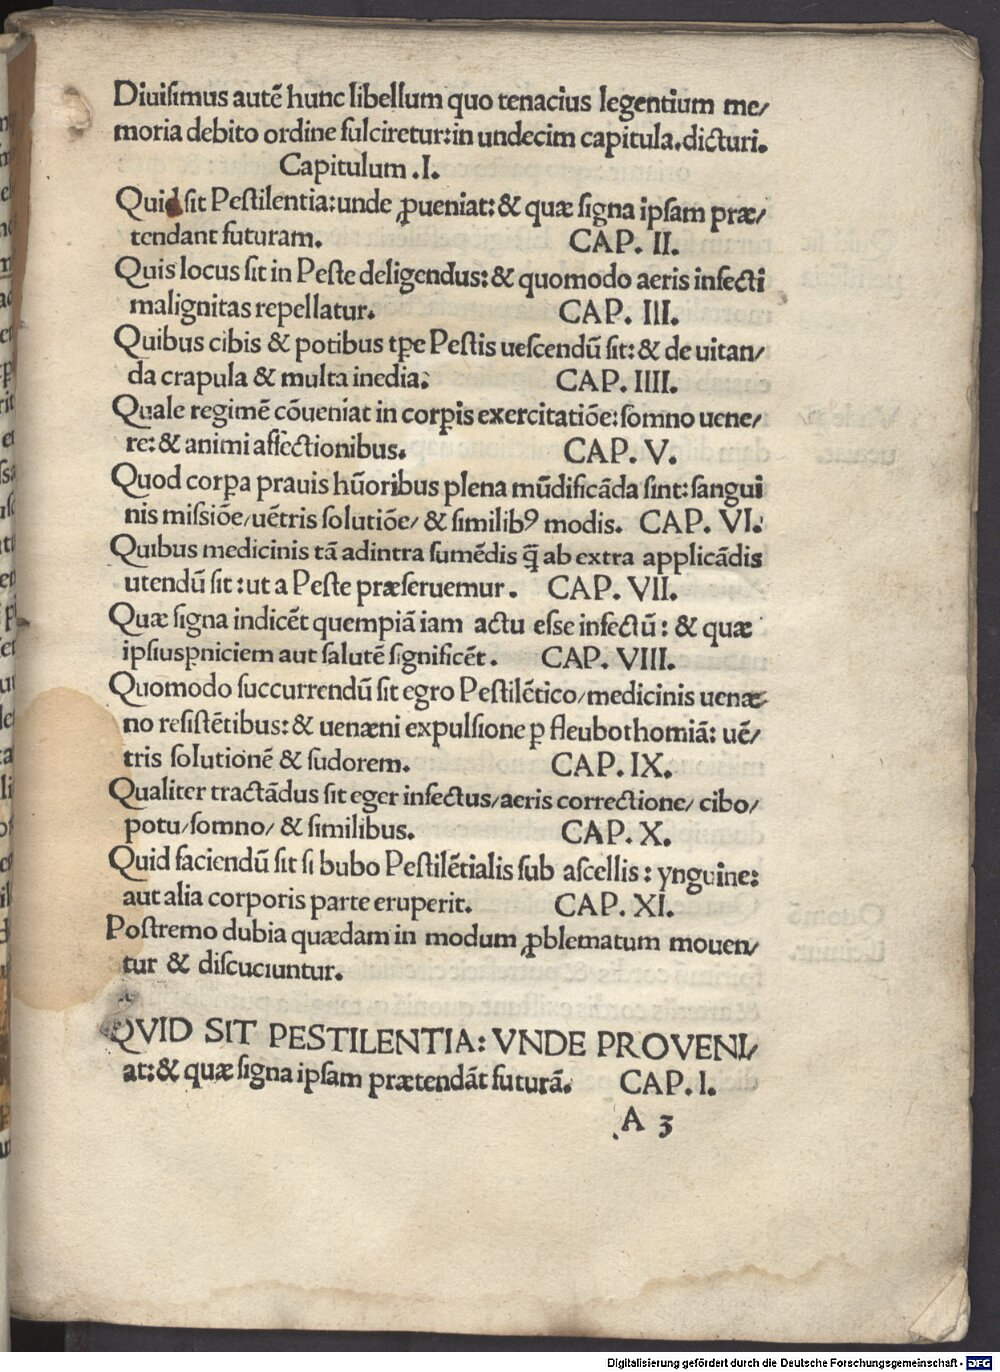 Diuiſimus autē hunc libellum quo tenacius legentium me/
moria debito ordine fulciretur:in undecim capitula.dicturi.
Capitulum .I.
Quid sit Peſtilentia:unde ꝓueniat: & quæ ſigna ipſam præ/
tendant futuram. CAP. II.
Quis locus ſit in Peſte deligendus: & quomodo aeris infecti
malignitas repellatur. CAP. III.
Quibus cibis & potibus tp̄e Peſtis ueſcendū ſit: & de uitan/
da crapula & multa inedia. CAP. IIII.
Quale regimē cōueniat in corpis exercitatiōe: ſomno uene/
re: & animi affectionibus. CAP. V.
Quod corꝑa prauis hūoribus plena mūdificāda ſint: ſangui
nis miſſiōe/uētris ſolutiōe/ & ſimilibꝰ modis. CAP. VI.
Quibus medicinis tā adintra ſumēdis q̄ ab extra applicādis
utendū ſit : ut a Peſte præſeruemur . CAP. VII.
Quæ ſigna indicēt quempiā iam actu eſſe infectū : & quæ
ipſiusꝑniciem aut ſalutē ſignificēt . CAP. VIII.
Quomodo ſuccurrendū ſit egro Peſtilētico/medicinis uenæ
no reſiſtētibus: & uenæni expulſione ꝑ fleubothomiā: uē/
tris ſolutionē & ſudorem. CAP. IX.
Qualiter tractādus ſit eger infectus/aeris correctione/ cibo/
potu/ſomno/ & ſimilibus. CAP. X.
Quid faciendū ſit ſi bubo Peſtilētialis ſub aſcellis : ynguine:
aut alia corporis parte eruperit. CAP. XI.
Poſtremo dubia quædam in modum ꝓblematum mouen/
tur & diſcuciuntur.
QVID SIT PESTILENTIA: VNDE PROVENI/
at: & quæ ſigna ipſam prætendāt futurā. CAP. I.
A 3
Digitalisierung gefördert durch die Deutsche Forschungsgemeinschaft - DFG